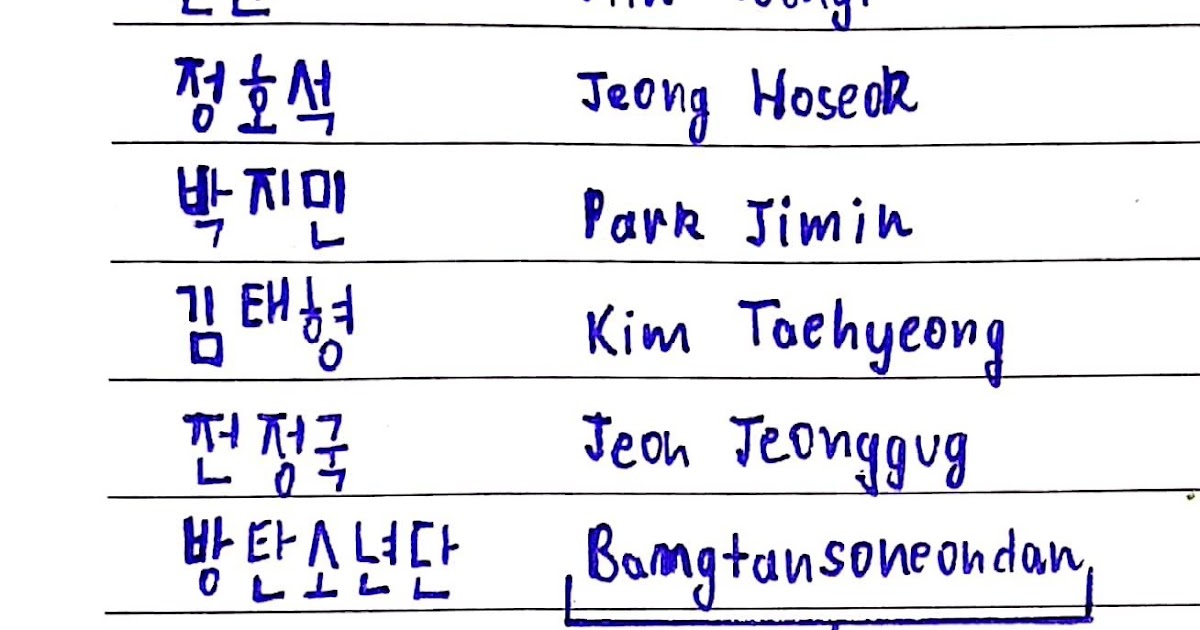 정호석 Jeong Hoseok
박지민 Park Jimin
김태형 Kim Taehyeong
전정국 Jeon Jeonggug
방탄소년단 Bamgtansoneondan